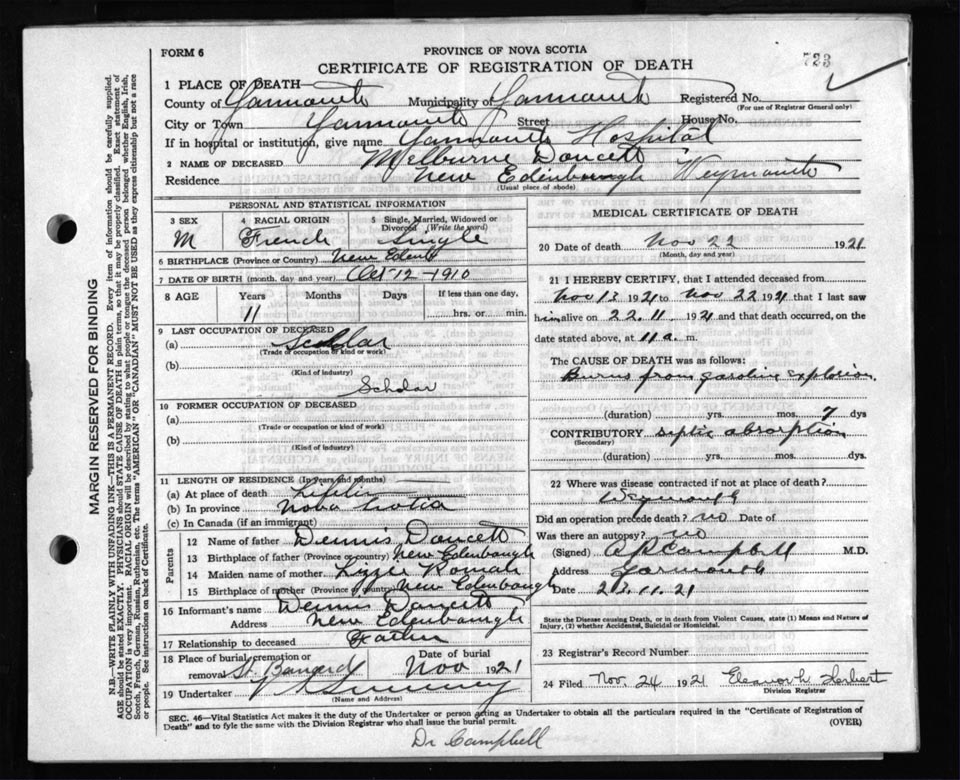 FORM 6
PROVINCE OF NOVA SCOTIA
723
CERTIFICATE OF REGISTRATION OF DEATH
1 PLACE OF DEATH—
County of Yarmouth Municipality of Yarmouth Registered No.
(For use of Registrar General only)
City or Town Yarmouth Street House No.
If in hospital or institution, give name Yarmouth Hospital
2 NAME OF DECEASED Melburne Doucett
Residence New Edinbaugh Weymouth
(Usual place of abode)
PERSONAL AND STATISTICAL INFORMATION
3 SEX 4 RACIAL ORIGIN 5 Single, Married, Widowed or Divorced (Write the word)
M French Single
6 BIRTHPLACE (Province or Country) New Edenb
7 DATE OF BIRTH (month, day and year) Oct 12 - 1910
8 AGE Years Months Days If less than one day,
11 hrs. or min.
9 LAST OCCUPATION OF DECEASED
(a) Scholar
(Trade or occupation or kind or work)
(b)
(Kind of industry)
Scholar
10 FORMER OCCUPATION OF DECEASED
(a)
(Trade or occupation or kind of work)
(b)
(Kind of industry)
11 LENGTH OF RESIDENCE (In years and months)
(a) At place of death
(b) In province Nova Scotia
(c) In Canada (if an immigrant)
Parents
12 Name of father Dennis Doucett
13 Birthplace of father (Province or country) New Edenbaugh
14 Maiden name of mother Lizzie
15 Birthplace of mother (Province or country) New Edenbaugh
16 Informant's name Dennis Doucett
Address New Edenbaugh
17 Relationship to deceased Father
18 Place of burial, cremation or removal St Banard Date of burial Nov 1921
19 Undertaker
(Name and Address)
MEDICAL CERTIFICATE OF DEATH
20 Date of death Nov 22 1921
(Month, day and year)
21 I HEREBY CERTIFY, that I attended deceased from
Nov 13 1921 to Nov 22 1921 that I last saw
him alive on 22.11 1921 and that death occurred, on the
date stated above, at 11 a. m.
The CAUSE OF DEATH was as follows:
Burns from gasoline explotion
(duration) yrs. mos. 7 dys
CONTRIBUTORY septic absorption
(Secondary)
(duration) yrs. mos. dys.
22 Where was disease contracted if not at place of death?
Weymouth
Did an operation precede death? no Date of
Was there an autopsy? no
(Signed) A R Campbell M.D.
Address Yarmouth
Date 23.11.21
State the Disease causing Death, or in death from Violent Causes, state (1) Means and Nature of
Injury, (2) whether Accidental, Suicidal or Homicidal.
23 Registrar's Record Number
24 Filed Nov. 24 1921 Eleanor L Herbert
Division Registrar
SEC. 46—Vital Statistics Act makes it the duty of the Undertaker or person acting as Undertaker to obtain all the particulars required in the "Certificate of Registration of
Death" and to fyle the same with the Division Registrar who shall issue the burial permit.
(OVER)
Dr Campbell
MARGIN RESERVED FOR BINDING
N.B.—WRITE PLAINLY WITH UNFADING INK—THIS IS A PERMANENT RECORD. Every item of information should be carefully supplied.
AGE should be stated EXACTLY. PHYSICIANS should STATE CAUSE OF DEATH in plain terms, so that it may be properly classified. Exact statement of
OCCUPATION is very important. RACIAL ORIGIN will be described by stating to what people or tongue the deceased person belonged, whether English, Irish,
Scotch, French, German, Russian, Ruthenian, etc. The terms "AMERICAN" or "CANADIAN" MUST NOT BE USED as they express citizenship but not a race
or people. See instructions on back of Certificate.